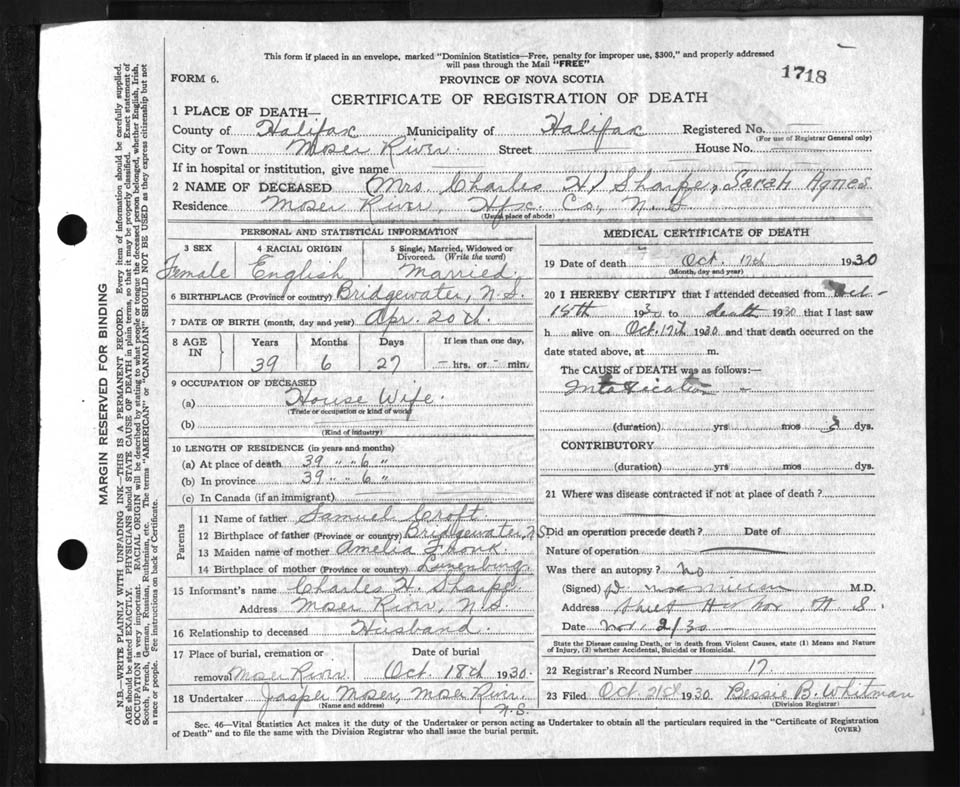 This form if placed in an envelope, marked "Dominion Statistics—Free, penalty for improper use, $300," and properly addressed
will pass through the Mail "FREE"
1718
FORM 6.
PROVINCE OF NOVA SCOTIA
CERTIFICATE OF REGISTRATION OF DEATH
1 PLACE OF DEATH—
County of Halifax Municipality of Halifax Registered No.
(For use of Registrar General only)
City or Town Moser River. Street House No.
If in hospital or institution, give name
2 NAME OF DECEASED (Mrs. Charles H) Sharpe, Sarah Agnes
Residence Moser River, Hfx. Co, N.S
(Usual place of abode)
PERSONAL AND STATISTICAL INFORMATION
3 SEX 4 RACIAL ORIGIN 5 Single, Married, Widowed or
Divorced. (Write the word)
Female English Married.
6 BIRTHPLACE (Province or country) Bridgewater, N.S.
7 DATE OF BIRTH (month, day and year) Apr. 20th.
8 AGE IN Years Months Days If less than one day,
39 6 27 hrs. or min.
9 OCCUPATION OF DECEASED
(a) House Wife.
(Trade or occupation or kind of work)
(b)
(Kind of industry)
10 LENGTH OF RESIDENCE (in years and months)
(a) At place of death 39 " " 6 "
(b) In province 39 " " 6 "
(c) In Canada (if an immigrant)
Parents
11 Name of father Samuel Croft
12 Birthplace of father (Province or country) Bridgewater, N.S
13 Maiden name of mother Amelia
14 Birthplace of mother (Province or country) Lunenburg.
15 Informant's name Charles H. Sharpe
Address Moser River, N.S
16 Relationship to deceased Husband.
17 Place of burial, cremation or Date of burial
removal Moser River Oct. 18th 1930.
18 Undertaker Jasper Moser, Moser River.
(Name and address) N.S.
MEDICAL CERTIFICATE OF DEATH
19 Date of death Oct. 17th 1930
(Month, day and year)
20 I HEREBY CERTIFY that I attended deceased from Oct-
15th 1930 to death 1930 that I last saw
h alive on Oct. 17th 1930 and that death occurred on the
date stated above, at m.
The CAUSE of DEATH was as follows:—
Intoxication
(duration) yrs mos 3 dys.
CONTRIBUTORY
(duration) yrs mos dys.
21 Where was disease contracted if not at place of death?
Did an operation precede death? Date of
Nature of operation
Was there an autopsy? no
(Signed) M.D.
Address Sheet Harbor N S
Date Nov. 2/30
State the Disease causing Death, or in death from Violent Causes, state (1) Means and Nature
of Injury, (2) whether Accidental, Suicidal or Homicidal.
22 Registrar's Record Number 17.
23 Filed Oct. 21st 1930 Bessie B. Whitman
(Division Registrar)
Sec. 46—Vital Statistics Act makes it the duty of the Undertaker or person acting as Undertaker to obtain all the particulars required in the "Certificate of Registration
of Death" and to file the same with the Division Registrar who shall issue the burial permit. (OVER)
MARGIN RESERVED FOR BINDING
N.B.—WRITE PLAINLY WITH UNFADING INK—THIS IS A PERMANENT RECORD. Every item of information should be carefully supplied.
AGE should be stated EXACTLY. PHYSICIANS should STATE CAUSE OF DEATH in plain terms, so that it may be properly classified. Exact statement of
OCCUPATION is very important. RACIAL ORIGIN will be described by stating to what people or tongue the deceased person belonged, whether English, Irish,
Scotch, French, German, Russian, Ruthenian, etc. The terms "AMERICAN" or "CANADIAN" SHOULD NOT BE USED as they express citizenship but not
a race or people. Fee instructions on back of Certificate.